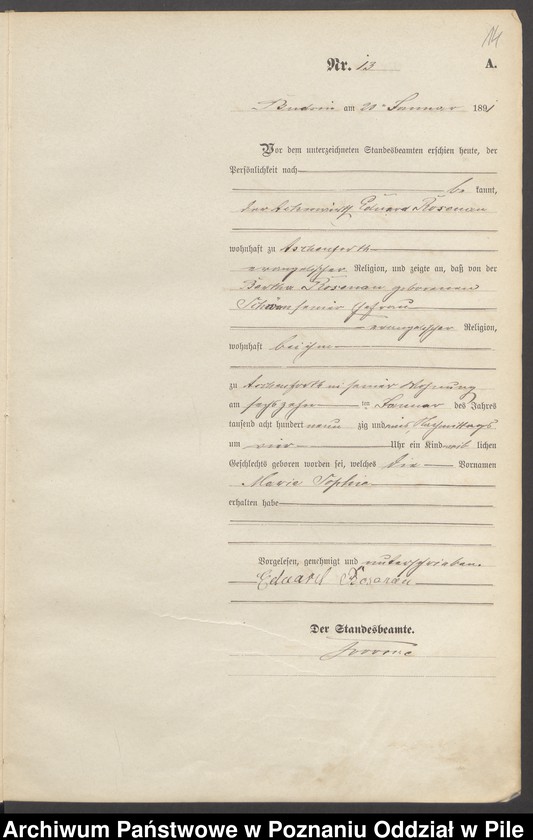 14
Nr. 13 A.
am 20. Januar 1891
Vor dem unterzeichneten Standesbeamten erschien heute, der
Persönlichkeit nach
be kannt,
der Eduard Rosenau
wohnhaft zu
evangelischer Religion, und zeigte an, daß von der
Bertha Rosenau geborenen
seiner Ehefrau
evangelischer Religion,
wohnhaft bei ihm
zu in seiner Wohnung
am sechszehn ten Januar des Jahres
tausend acht hundert neun zig und eins Nachmittags
um vier Uhr ein Kind weib lichen
Geschlechts geboren worden sei, welches die Vornamen
Marie Sophie
erhalten habe
Vorgelesen, genehmigt und unterschrieben
Eduard Rosenau
Der Standesbeamte.
Archiwum Państwowe w Poznaniu Oddział w Pile